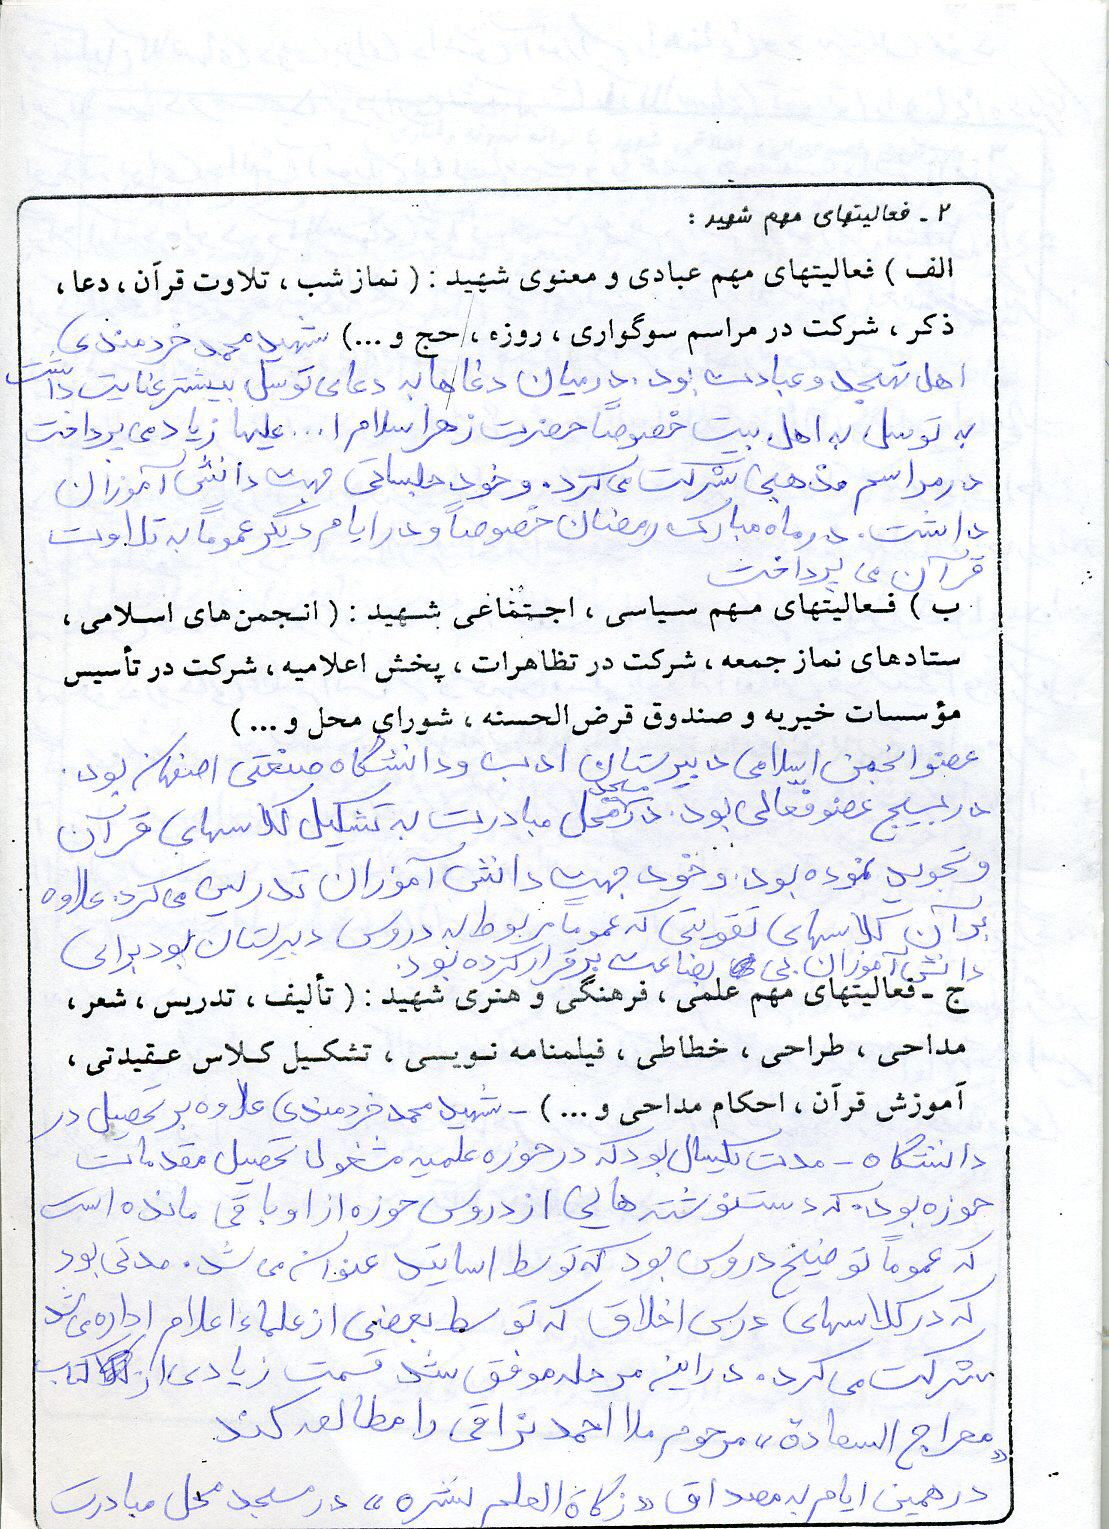 ۲ - فعالیتهای مهم شهید :
الف ) فعالیتهای مهم عبادی و معنوی شهید : ( نماز شب ، تلاوت قرآن ، دعا ،
ذکر ، شرکت در مراسم سوگواری ، روزه ، حج و ...) شهید محمد خردمندی
اهل تهجد و عبادت بود . در میان دعاها به دعای توسل بیشتر عنایت داشت
به توسل به اهل بیت خصوصاً حضرت زهرا سلام ا... علیها زیاد می پرداخت
در مراسم مذهبی شرکت می کرد . و خود جلساتی جهت دانش آموزان
داشت . در ماه مبارک رمضان خصوصاً و در ایام دیگر عموماً به تلاوت
قرآن می پرداخت
ب ) فعالیتهای مهم سیاسی ، اجتماعی شهید : ( انجمن‌های اسلامی ،
ستادهای نماز جمعه ، شرکت در تظاهرات ، پخش اعلامیه ، شرکت در تأسیس
مؤسسات خیریه و صندوق قرض‌الحسنه ، شورای محل و ... )
عضو انجمن اسلامی دبیرستان ادب و دانشگاه صنعتی اصفهان بود .
در بسیج عضو فعالی بود . در مسجد محل مبادرت به تشکیل کلاسهای قرآن
و تجوید نموده بود . و خود جهت دانش آموزان تدریس می کرد . علاوه
بر آن کلاسهای تقویتی که عموماً مربوط به دروس دبیرستان بود برای
دانش آموزان بی بضاعت برقرار کرده بود .
ج - فعالیتهای مهم علمی ، فرهنگی و هنری شهید : ( تألیف ، تدریس ، شعر ،
مداحی ، طراحی ، خطاطی ، فیلمنامه نویسی ، تشکیل کلاس عقیدتی ،
آموزش قرآن ، احکام مداحی و ... ) - شهید محمد خردمندی علاوه بر تحصیل در
دانشگاه - مدت یکسال بود که در حوزه علمیه مشغول تحصیل مقدمات
حوزه بود . که دستنوشته هایی از دروس حوزه از او باقی مانده است
که عموماً توضیح دروس بود که توسط اساتید عنوان می شد . مدتی بود
که در کلاسهای درس اخلاق که توسط بعضی از علماء اعلام اداره می شد
شرکت می کرد . در این مرحله موفق شد قسمت زیادی از کتاب
«معراج السعادة» مرحوم ملا احمد نراقی را مطالعه کند
در همین ایام به مصداق «زکاة العلم نشره» در مسجد محل مبادرت